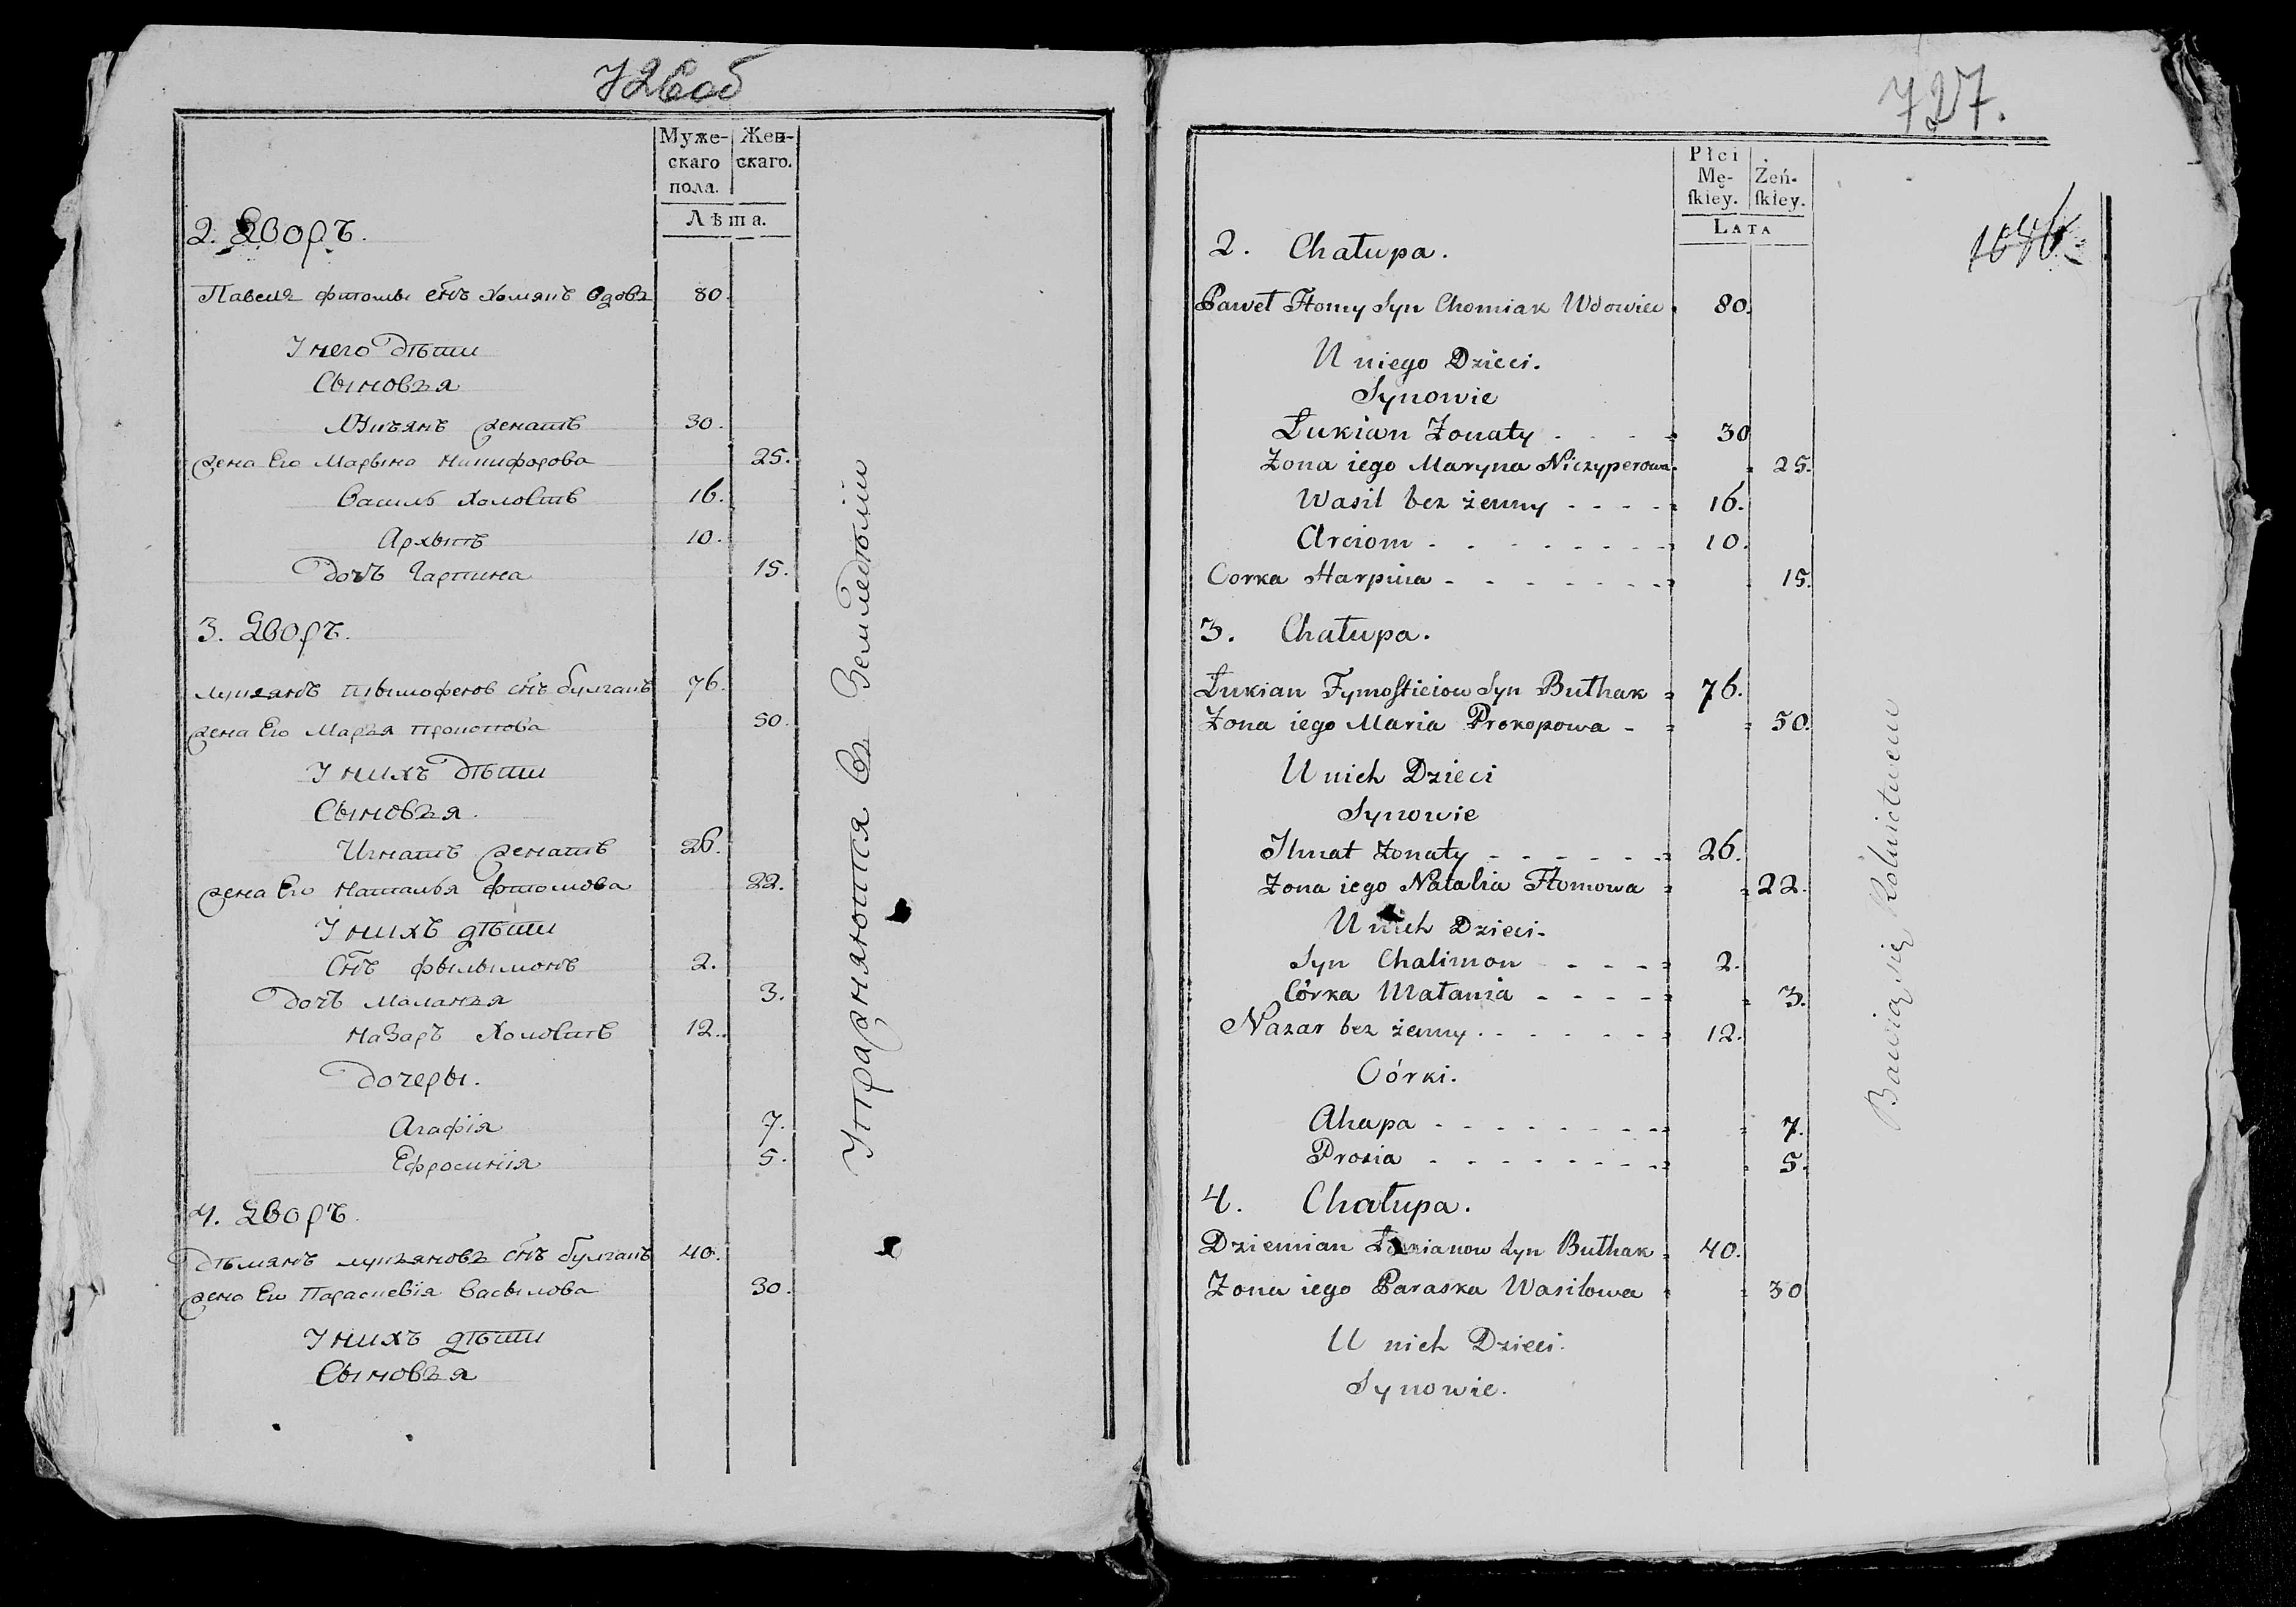 726об
Муже-
скаго
пола.
Жен-
скаго.
Лѣта.
2. Дворъ.
Павелъ Фтомы снъ Хомякъ вдовъ 80.
У него дѣти
Сыновья
Лукъянъ женатъ 30.
жена Его Марына Никифорова 25.
Василь холостъ 16.
Архыпъ 10.
Дочъ Гарпина 15.
3. Дворъ.
Лукъянъ Тымофеювъ снъ Булгакъ 76.
жена Его Марья Прокопова 50.
У нихъ дѣти
Сыновья.
Игнатъ женатъ 26.
жена Его Наталья Фтомова 22.
У нихъ дѣти
Снъ Фылымонъ 2.
Дочъ Маланья 3.
Назаръ холостъ 12.
Дочеры.
Агафія 7.
Ефросинія 5.
4. Дворъ.
Дѣмянъ Лукъяновъ снъ Булгакъ 40.
жена Его Параскевія Васылова 30.
У нихъ дѣти
Сыновья
Упражняются въ Земледѣліи
727.
Płci
Mę-
ſkiey.
Żeń-
ſkiey.
LATA
2. Chałupa.
Paweł Ftomy Syn Chomiak Wdowiec 80.
U niego Dzieci.
Synowie
Łukian Żonaty 30
Żona iego Maryna Niczyperowa 25.
Wasil bez żenny 16.
Arciom 10.
Corka Harpina 15.
3. Chałupa.
Łukian Tymofieiow Syn Bułhak 76.
Żona iego Maria Prokopowa 50.
U nich Dzieci
Synowie
Ihnat Żonaty 26.
Żona iego Natalia Ftomowa 22.
U nich Dzieci.
Syn Chalimon 2.
Córka Małania 3.
Nazar bez żenny 12.
Córki.
Ahapa 7.
Prosia 5.
4. Chałupa.
Dziemian Łukianow Syn Bułhak 40.
Żona iego Paraska Wasilowa 30
U nich Dzieci.
Synowie.
Bawią się Rólnictwem